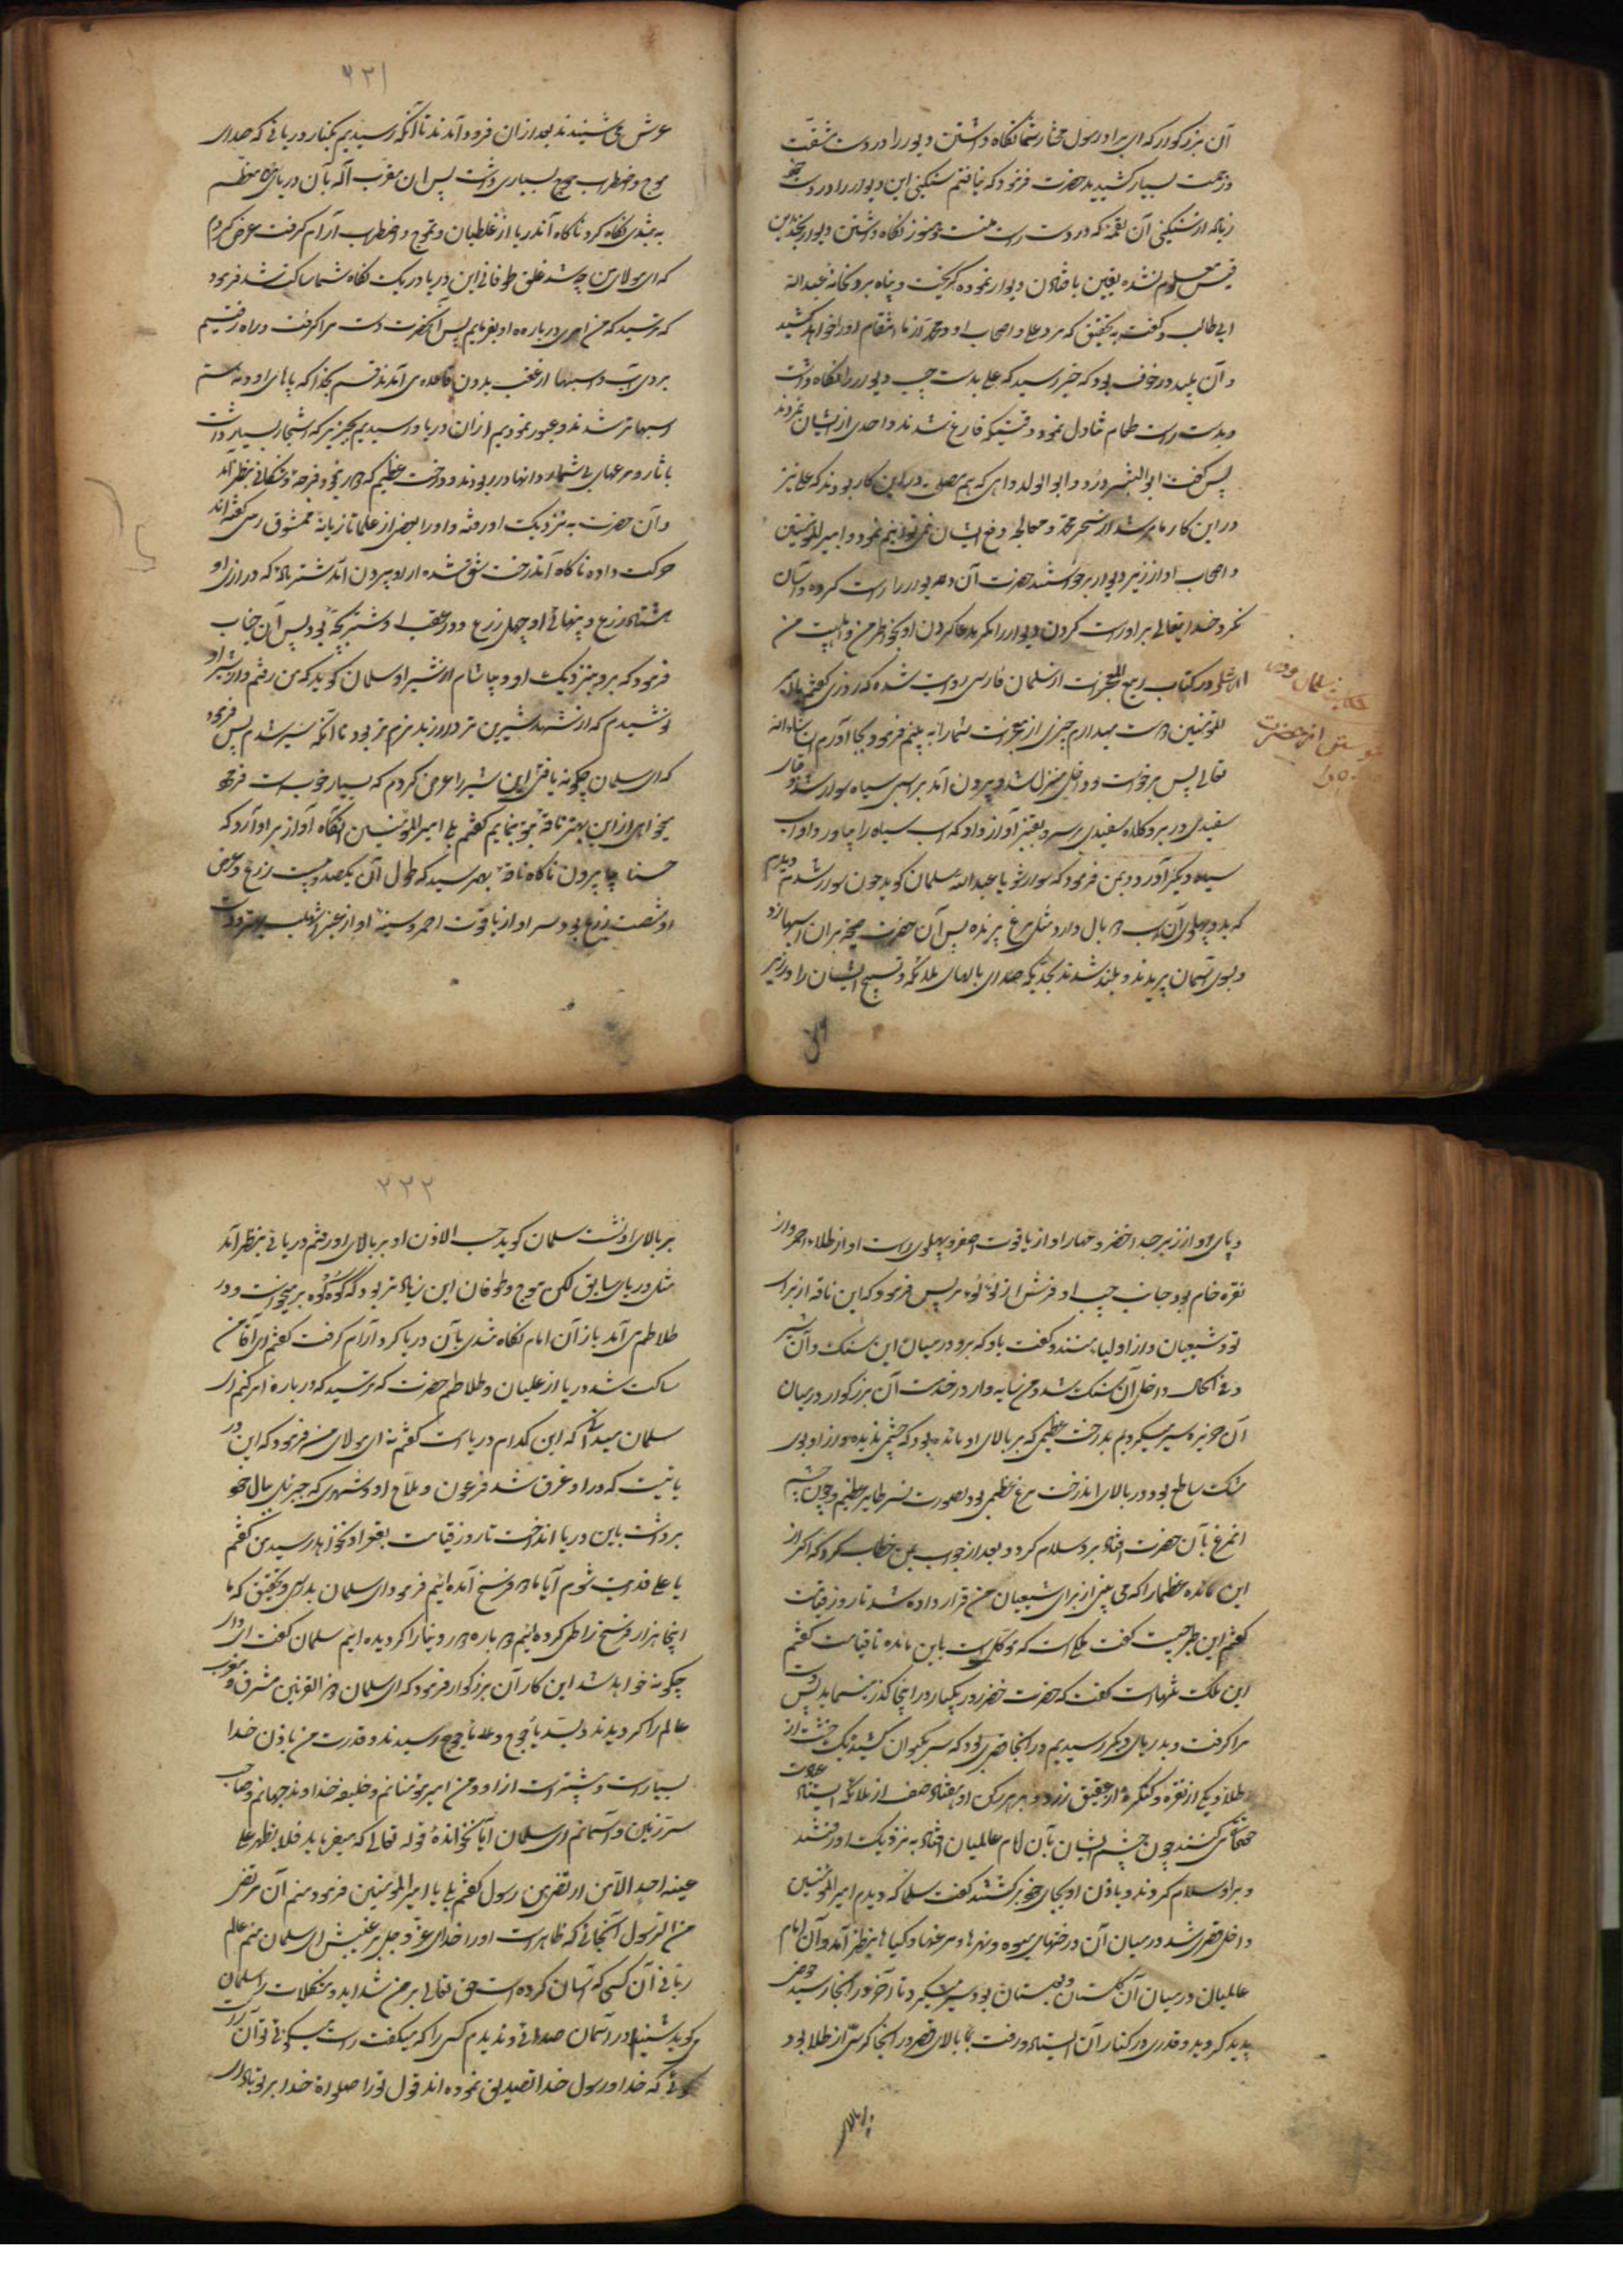 آن بزرکوار که ای برادر رسول مختار شما نکاه داشتن دیوار را در دست مشقت
وزحمت بسیار کشیدید حضرت فرمود که نیافتم سنکینی این دیوار را در دست چپ
زیاده از سنکینی آن لقمه که در دست راست منست و هنوز نکاه داشتن دیوار بجد بن
قیس معلوم نشده یقین بافتادن دیوار نموده کریخت و پناه برد بخانه عبدالله
ابی طالب و کفت به تحقیق که مرد علی و اصحاب او و محمد از ما انتقام او را خواهد کشید
و آن پلید در خوف بود که خبر رسید که علی بدست چپ دیوار را نکاه داشت
و بدست راست طعام تناول نمود و وقتیکه فارغ شدند و احدی از ایشان نمردند
پس کفت ابو الشرور و ابو الدواهی که هم مصلحت در این کار بودند که علی نیز
در این کار ماهر شد از سحر محمد و معالجه دفع ایشان نمی توانیم نمود و امیرالمؤمنین
و اصحاب او از زیر دیوار برخواستند حضرت آن دیوار را راست کرده و آسان
نکرد خدایتعالی بر او راست کردن دیوار را مکر بدعا کردن او بخاطر من و اهلبیت من
در کتاب ربیع المعجزات از سلمان فارسی روایت شده که روزی کفتم یا امیر
المؤمنین دوست میدارم چیزی از معجزات شما را به بینم فرمود بجا آورم انشاءالله
تعالی پس برخواست و داخل منزل شد و بیرون آمد بر اسبی سیاه سوار شد و قبای
سفیدی در بر و کلاه سفیدی بر سر و بقنبر آواز داد که اسب سیاه را بیاور و او اسب
سیاه دیکر آورد و بمن فرمود که سوار شو یا عبدالله سلمان کوید چون سوار شدم دیدم
که بدو پهلوی آن اسب دو بال دارد مثل مرغ پرنده پس آن حضرت صیحه بر آن اسبها زد
و بسوی آسمان پریدند و بلند شدند بحدیکه صدای بالهای ملائکه و تسبیح ایشان را در زیر
حکایت سلمان
٢٣١
عرش می شنیدند بعد از آن فرود آمدند تا آنکه رسیدیم بکنار دریائی که صدای
موج و اضطراب موج بسیاری داشت پس آن مقرب اله بآن دریای معظم
به تندی نکاه کرد ناکاه آندریا از غلطیان و تموج و اضطراب آرام کرفت عرض کردم
که ای مولای من چه شد غلق طوفانی این دریا در یک نکاه شما ساکت شد فرمود
که ترسید که من امری درباره او بفرمایم پس آنحضرت دست مرا کرفت و راه رفتیم
بروی آب و اسبها از عقب بدون قائده می آمدند قسم بخدا که پاهای او و نه سم
اسبها تر شدند و عبور نمودیم از آن دریا و رسیدیم بجزیره که اشجار بسیار داشت
با ثمار و مرغهای بی شمار و انهار در بودند و درخت عظیم که
و آن حضرت به نزدیک او رفته و او را
حرکت داده ناکاه آندرخت شق شده از او بیرون آمد شتر ماده که درازی او
هشتاد زرع و پهنائی او چهل زرع و در عقب او شتر بچه بود پس آن جناب
فرمود که برو بنزدیک او و بیاشام از شیر او سلمان کوید که من رفتم و از شیر او
نوشیدم که از شهد شیرین تر و از زبد نرم تر بود تا آنکه سیر شدم پس فرمود
که ای سلمان چکونه یافتی این شیر را عرض کردم که بسیار خوب است فرمود
میخواهی از این بهتر ناقه بتو بنمایم کفتم بلی امیرالمؤمنین آنکاه آواز برآورد که
حسنا بیا بیرون ناکاه ناقه بهم رسید که طول آن یکصد و بیست زرع و عرض
او شصت زرع بود و سر او از یاقوت احمر و سینه او از عنبر اشهب
و پای او از زبرجد اخضر و مهار او از یاقوت اصفر و پهلوی راست او از طلاء احمر و از
نقره خام بود جانب چپ او و فرش از لؤلؤ تر پس فرمود که این ناقه از برای
تو و شیعیان و از اولیاء منند و کفت باو که برو در میان این سنک و آن شتر
دفی الحال داخل آن سنک شد و من سایه وار در خدمت آن بزرکوار در میان
آن جزیره سیر میکردم بدرخت عظیمی که بر بالای او مائده بود که چشمی ندیده و از او بوی
مشک ساطع بود و در بالای آندرخت مرغ عظیمی بود بصورت نسر طایر عظیم و چون چشم
آنمرغ بآن حضرت افتاد بر او سلام کرد و بعد از جواب بمن خطاب کرد که
این مائده عظما را که می بینی از برای شیعیان من قرار داده شد تا روز قیامت
کفتم این طیر چیست کفت ملکی است که موکل است باین مائده تا قیامت کفتم
این ملک تنهاست کفت که حضرت خضر روز یکبار در اینجا کذر مینماید پس دست
مرا کرفت و بدریای دیکر رسیدیم در آنجا قصری بود که سر بکیوان کشیده یک خشت از
طلا و یکی از نقره و کنکره از عقیق زرد و بر هر رکن او هفتاد صف از ملائکه ایستاده
چون چشم ایشان بآن امام عالمیان افتاد به نزدیک او رفتند
و بر او سلام کردند و باذن او بجای خود برکشتند کفت سلمان که دیدم امیرالمؤمنین
داخل قصری شد در میان آن درختهای میوه و نهرها و مرغها و کیاهها بنظر آمد و آن امام
عالمیان در میان آن کلستان و بستان بود و سیر میکرد تا آخر در آنجا رسید حوض
پدید کردید و قدری در کنار آن ایستاد و رفت به بالای قصر در آنجا کرسی از طلا بود
بر بالای
٢٣٢
بر بالای او نشست سلمان کوید حسب الاذن او بر بالای او رفتم دریائی بنظر آمد
مثل دریای سابق لکن موج و طوفان این زیاد تر بود که کوه کوه بر میخواست و در
طلاطم می آمد باز آن امام نکاه تندی بآن دریا کرد آرام کرفت کفتم ای آقای من
ساکت شد دریا از غلیان و طلاطم حضرت که ترسید که درباره امر کنم ای
سلمان میدانی که این کدام دریا است کفتم نه ای مولای من فرمود که این در
یائیست که در او غرق شد فرعون و ملاء او و شهری که جبرئیل ببال خود
برداشت باین دریا انداخت تا روز قیامت بقعر او نخواهد رسید من کفتم
یا علی فدایت شوم آیا ما دو فرسخ آمده ایم فرمود ای سلمان بدرستی و تحقیق که ما
پنجاه هزار فرسخ را طی کرده ایم و ده باره دور دنیا را کردیده ایم سلمان کفت ای
چکونه خواهد شد این کار آن بزرکوار فرمود که ای سلمان ذو القرنین مشرق و مغرب
عالم را کردیدند و بسد یأجوج و مأجوج رسیدند و قدرت من باذن خدا
بسیار است و بیشتر است از او و من امیر مؤمنانم و خلیفه خداوند جهانم و صاحب
سر زمین و آسمانم ای سلمان آیا نخوانده قوله تعالی که میفرماید فلا یظهر علی
غیبه احدا الا من ارتضی من رسول کفتم بلی یا امیر المؤمنین فرمود منم آن مرتضی
من الرسول آنچنانی که ظاهر است او را خدای عز و جل بر غیبش ای سلمان منم عالم
ربانی آن کسی که آسان کرده است حق تعالی بر من شداید و مشکلات را سلمان
می کوید شنیدم در آسمان صدائی و ندیدم کسی را که میکفت راست میکوئی تو آن راست
کوئی که خدا و رسول خدا تصدیق نموده اند قول تو را صلواة خدا بر تو باد ای